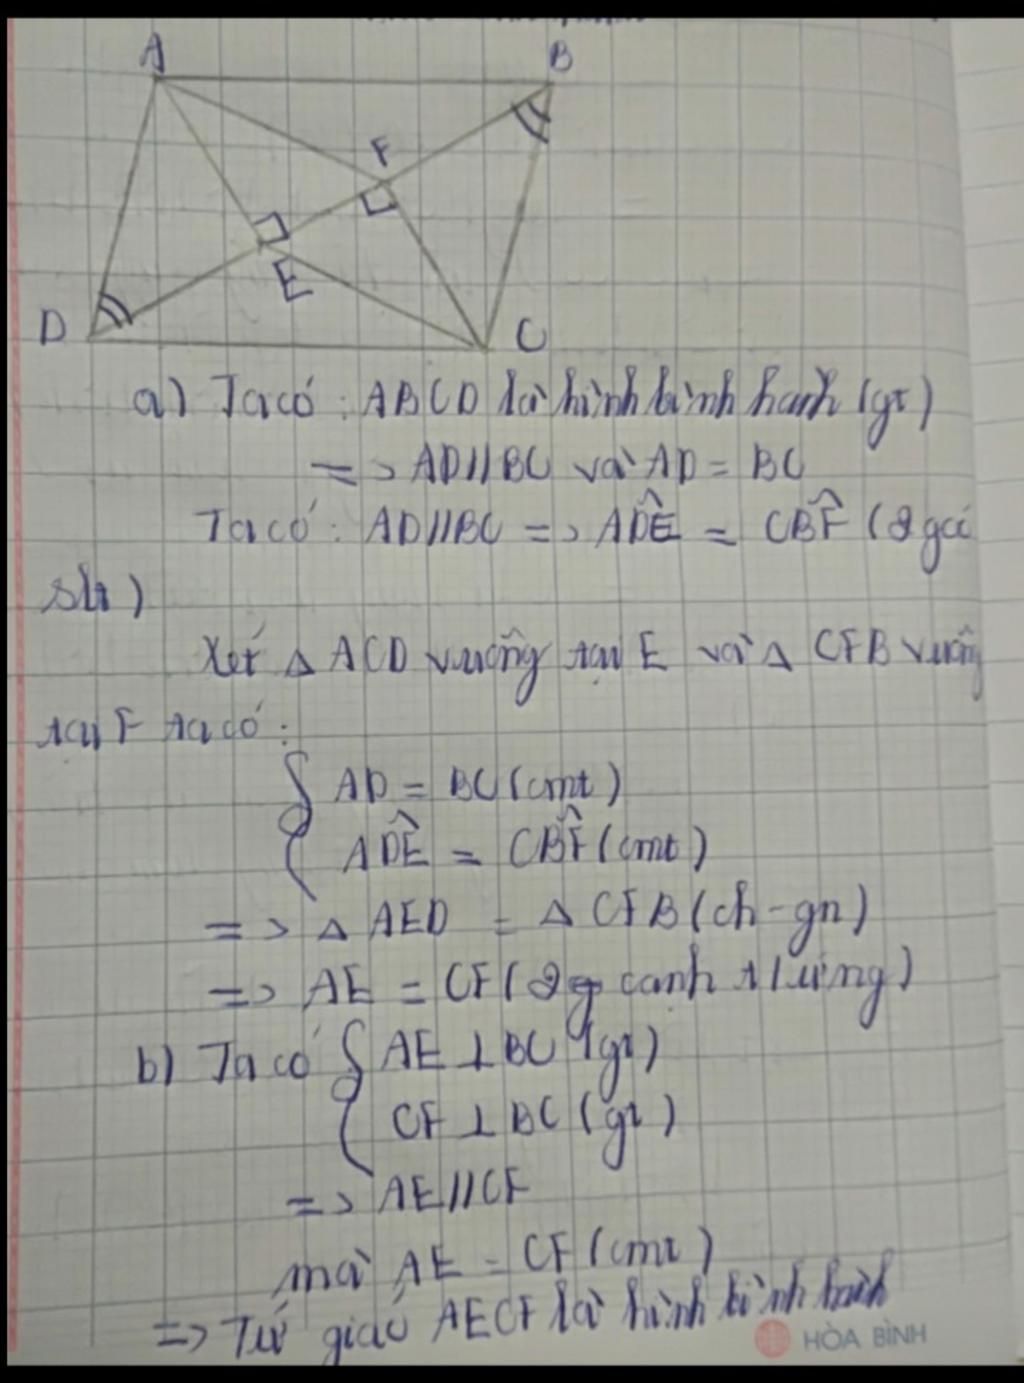 A
B
F
E
D
C
a) Ta có: ABCD là hình bình hành (gt)
=> AD//BC và AD = BC
Ta có: AD//BC => ADÊ = CBF̂ (2 góc
slt)
Xét △ ACD vuông tại E và △ CFB vuông
tại F ta có:
AD = BC (cmt)
ADÊ = CBF̂ (cmt)
=> △ AED = △ CFB (ch-gn)
=> AE = CF (2 cạnh t/ứng)
b) Ta có { AE ⊥ BC (gt)
CF ⊥ BC (gt)
=> AE//CF
mà AE = CF (cmt)
=> Tứ giác AECF là hình bình hành
HÒA BÌNH